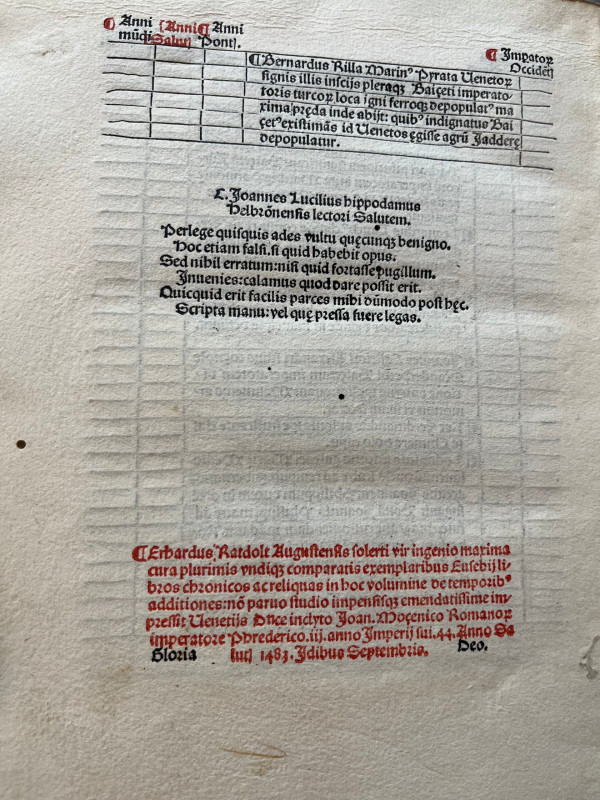 ¶ Anni mūdi
¶ Anni Salutꝭ
¶ Anni Pontꝭ.
¶ Imꝑatoꝝ Occidētꝭ
¶ Bernardus Rilla Marinꝰ Pyrata Uenetoꝝ
signis illis insciis pleraqꝫ Baiȩeti imperato
toris turcoꝝ loca igni ferroqꝫ depopulatꝰ ma
xima prȩda inde abijt: quibꝰ indignatus Bai
çetꝰ existimās id Uenetos ȩgisse agrū Jadderȩ
depopulatur.
L. Joannes Lucilius hippodamus
helbrōnensis lectori Salutem.
Perlege quisquis ades vultu quȩcunqꝫ benigno.
Hoc etiam falsi. si quid habebit opus.
Sed nihil erratum: nisi quid fortasse pugillum.
Inuenies: calamus quod dare possit erit.
Quicquid erit facilis parces mihi dūmodo post hȩc.
Scripta manu: vel quȩ pressa fuere legas.
¶ Erhardus Ratdolt Augustensis solerti vir ingenio maxima
cura plurimis vndiqꝫ comparatis exemplaribus Eusebij li
bros chronicos ac reliquas in hoc volumine de temporibꝰ
additiones: nō paruo studio impensisqꝫ emendatissime im
pressit Uenetijs Duce inclyto Joan. Moçenico Romanoꝝ
imperatore Phrederico. iij. anno Imperij sui. 44. Anno Sa
Gloria lutꝭ 1483. Idibus Septembris. Deo.